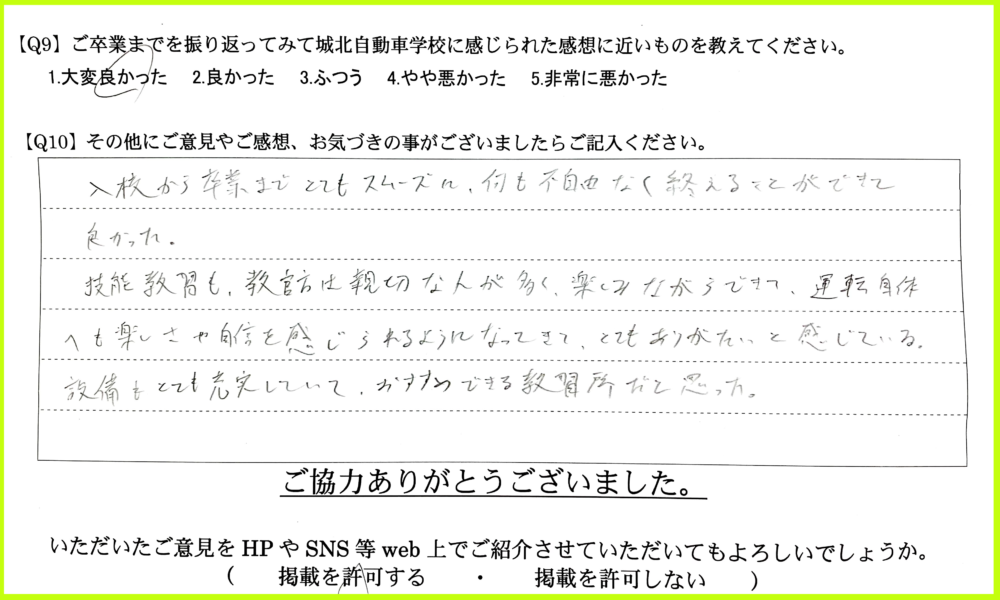 【Q9】ご卒業までを振り返ってみて城北自動車学校に感じられた感想に近いものを教えてください。
1.大変良かった　2.良かった　3.ふつう　4.やや悪かった　5.非常に悪かった
【Q10】その他にご意見やご感想、お気づきの事がございましたらご記入ください。
入校から卒業までとてもスムーズに、何も不自由なく終えることができて
良かった。
技能教習も、教官方は親切な人が多く、楽しみながらできて、運転自体
へも楽しさや自信を感じられるようになってきて、とてもありがたいと感じている。
設備もとても充実していて、おすすめできる教習所だと思った。
ご協力ありがとうございました。
いただいたご意見をHPやSNS等web上でご紹介させていただいてもよろしいでしょうか。
(　掲載を許可する　・　掲載を許可しない　)